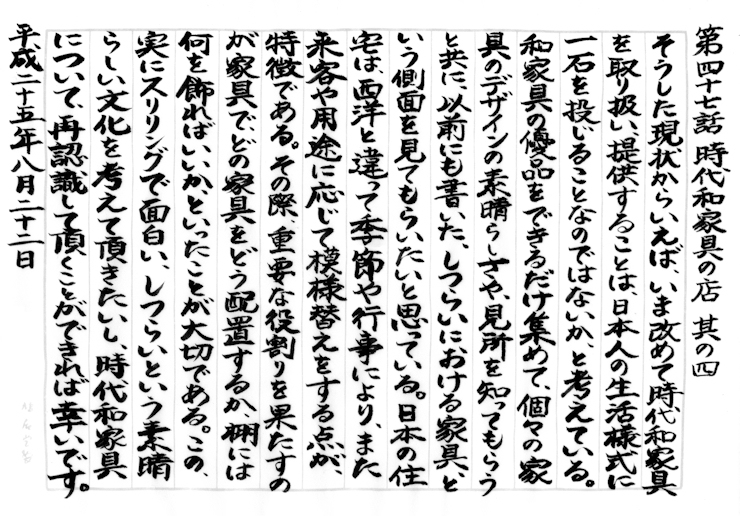 第四十七話 時代和家具の店 其の四
そうした現状からいえば、いま改めて時代和家具
を取り扱い、提供することは、日本人の生活様式に
一石を投じることなのではないか、と考えている。
和家具の優品をできるだけ集めて、個々の家
具のデザインの素晴らしさや、見所を知ってもらう
と共に、以前にも書いた、しつらいにおける家具、と
いう側面を見てもらいたいと思っている。日本の住
宅は、西洋と違って季節や行事により、また
来客や用途に応じて模様替えをする点が、
特徴である。その際、重要な役割りを果たすの
が家具で、どの家具をどう配置するか、棚には
何を飾ればいいか、といったことが大切である。この、
実にスリリングで面白い、しつらいという素晴
らしい文化を考えて頂きたいし、時代和家具
について、再認識して頂くことができれば幸いです。
平成二十五年八月二十二日